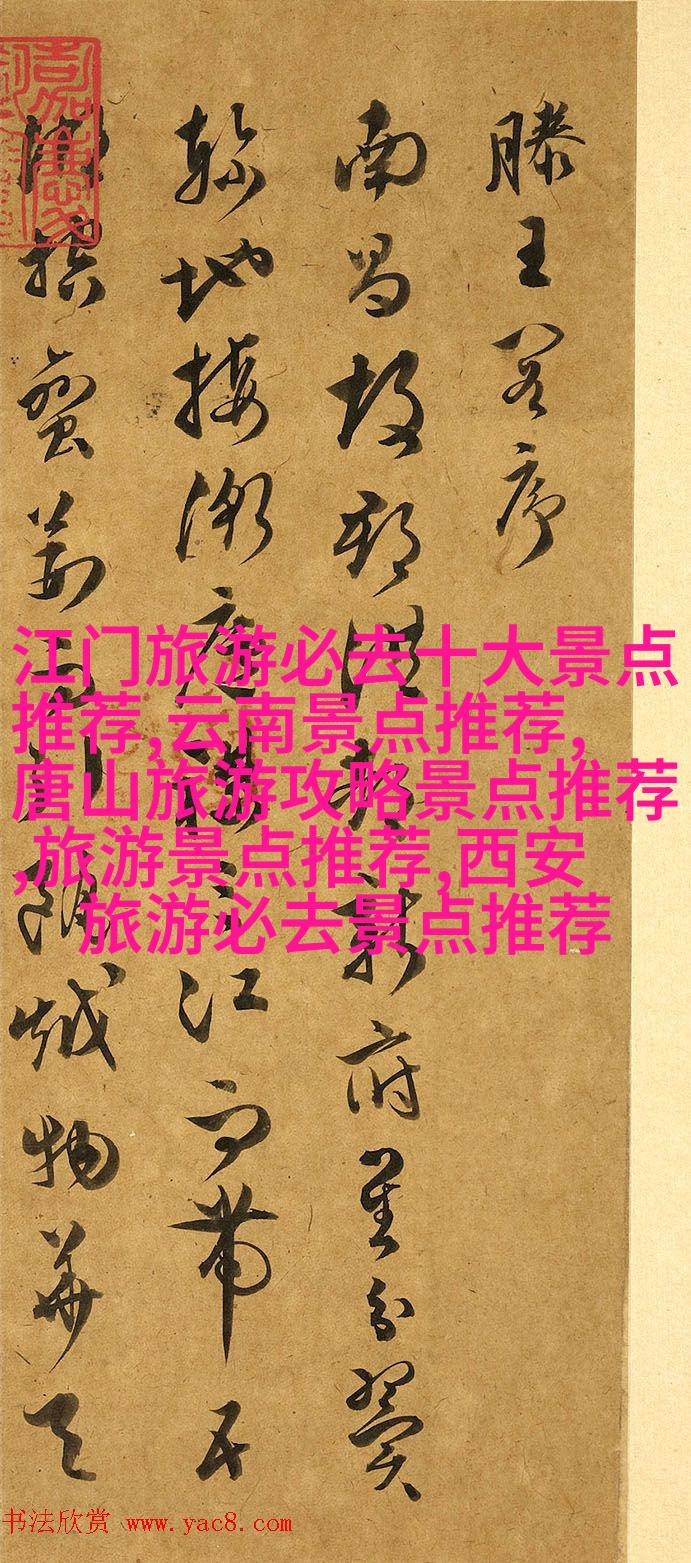 滕王閣序
南昌故郡洪都新府星分翼
軫地接衡廬襟三江而帶五
湖控蠻荊而引甌越物華天
江门旅游必去十大景点
推荐,云南景点推荐,
唐山旅游攻略景点推荐
,旅游景点推荐,西安
旅游必去景点推荐
书法欣赏 www.yac8.com